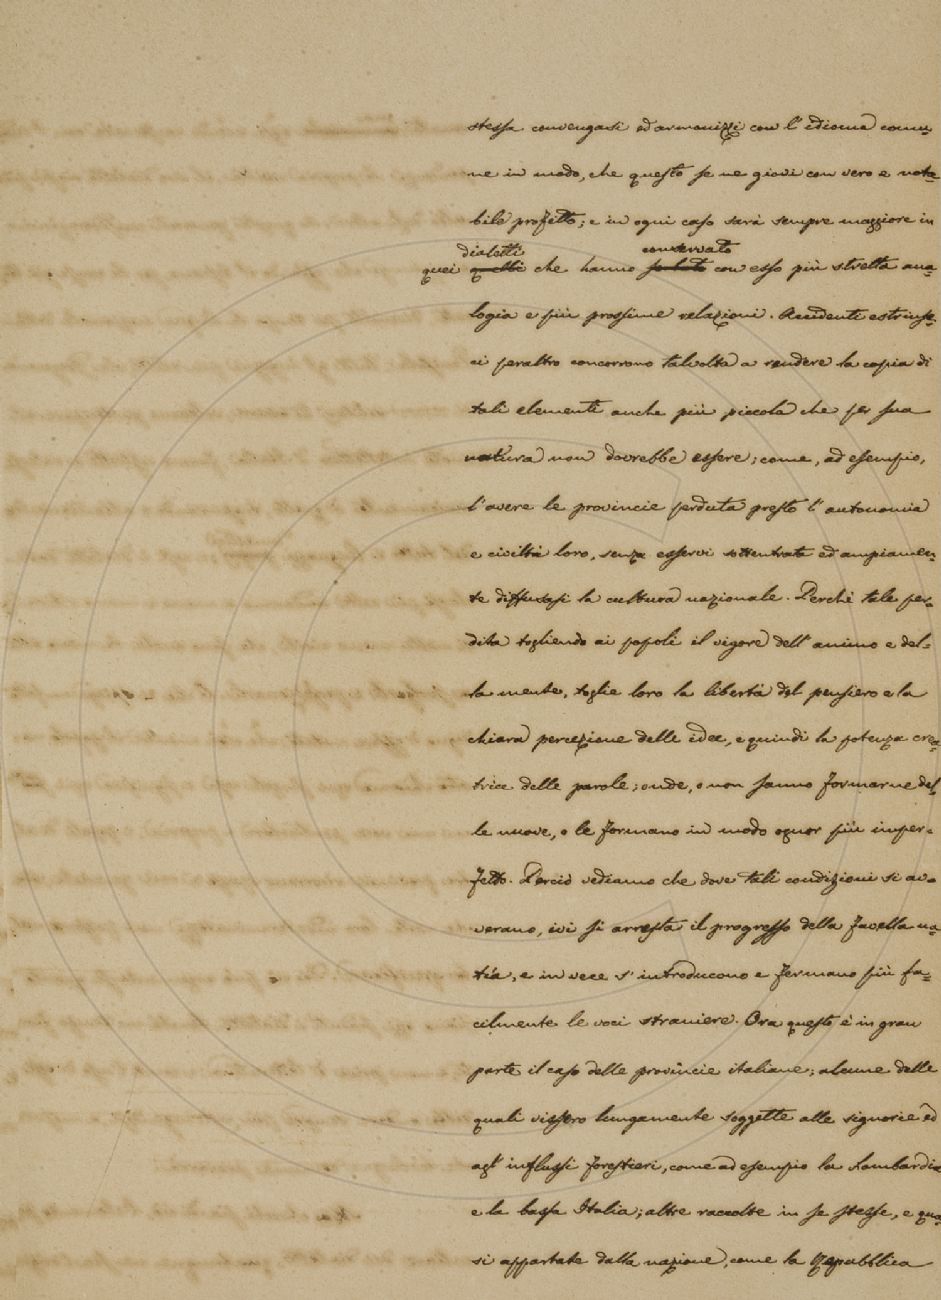 stessa convengasi ed armonizzi con l'idioma comu=
ne in modo, che questo se ne giovi con vero e nota=
bile profitto; e in ogni caso sarà sempre maggiore in
dialetti conservato
quei quelli che hanno serbato con esso più stretta ana=
logia e più prossime relazioni. Accidenti estrinse=
ci peraltro concorrono talvolta a rendere la copia di
tali elementi anche più piccola che per sua
natura non dovrebbe essere; come, ad esempio,
l'avere le provincie perduta presto l'autonomia
e civiltà loro, senza esservi sottentrata ed ampiamen=
te diffusasi la cultura nazionale. Perchè tale per=
dita togliendo ai popoli il vigore dell'animo e del=
la mente, toglie loro la libertà del pensiero e la
chiara percezione delle idee, e quindi la potenza crea=
trice delle parole; onde, o non sanno formarne del=
le nuove, o le formano in modo ognor più imper=
fetto. Perciò vediamo che dove tali condizioni si av=
verano, ivi si arresta il progresso della favella na=
tía, e in vece s'introducono e fermano più fa=
cilmente le voci straniere. Ora questo è in gran
parte il caso delle provincie italiane; alcune delle
quali vissero lungamente soggette alle signorie ed
agl'influssi forestieri, come ad esempio la Lombardia
e la bassa Italia; altre raccolte in se stesse, e qua=
si appartate dalla nazione, come la Repubblica